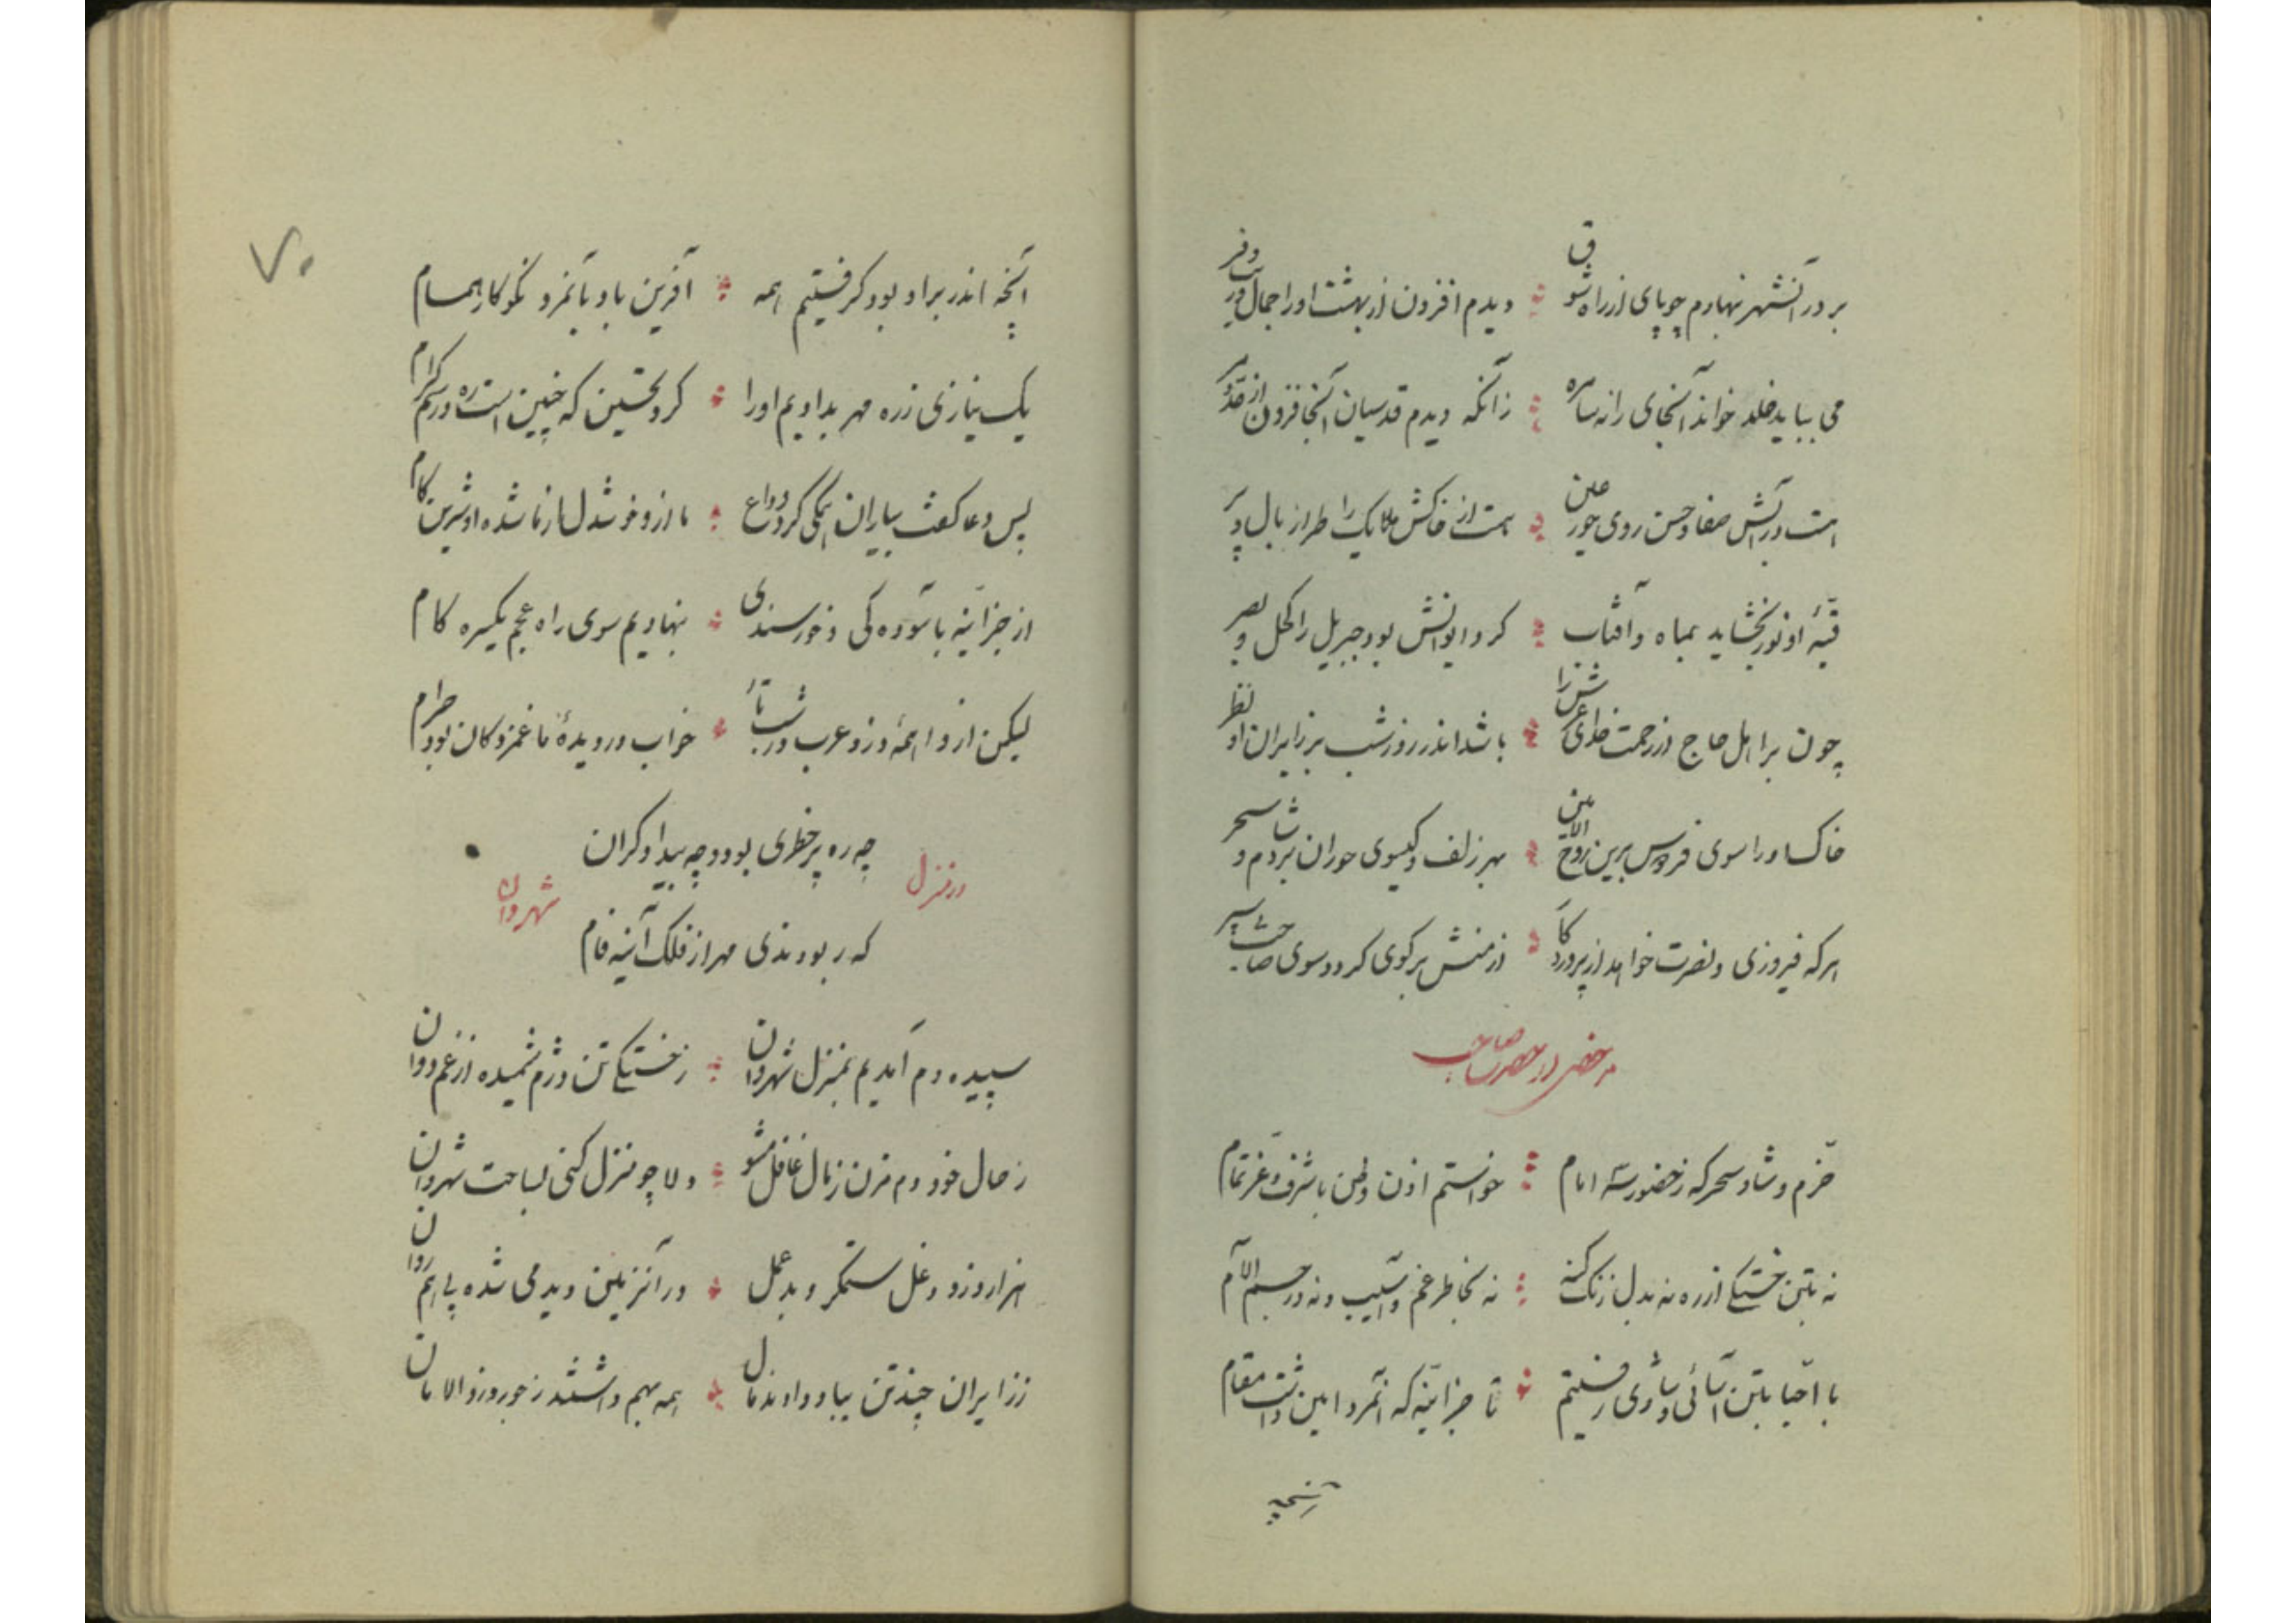 بر در آنشهر نهادم چو پای از راه شوق دیدم افزون از بهشت او را جمال و زیب و فر
می بباید خلد خواند آنجای را نه سامره زانکه دیدم قدسیان آنجا فزون از
هست در آبش صفا و حسن روی حور عین هست از خاکش ملایک را طراز بال و پر
قبهٔ او نور بخشاید بماه و آفتاب گرد ایوانش بود جبریل را کحل بصر
چون بر اهل حاج از رحمت خدای عرش را باشد اندر روز و شب بر زایران او نظر
خاک او را سوی فردوس برین روح الامین بهر زلف و گیسوی حوران برد شام و سحر
هر که فیروزی و نصرت خواهد از پروردگار از منش بر گوی گردد سوی صاحب
مرخصی از حضرت صاحب
خرم و شاد سحرگه ز حضور شه امام خواستم اذن وطن با شرف و عز تمام
نه بتن خستگی از ره نه بدل زنگ گنه نه بخاطر غم و آسیب و نه در جسم آلام
با احبا بتن آسائی و شادی رفتیم تا جزانیه که آنمرد امین داشت مقام
آنچه
۷۰
آنچه اندر بر او بود گرفتیم همه آفرین باد بآنمرد نکوکار همام
یک نیازی ز ره مهر بدادیم او را کرد تحسین که چنین است ره و رسم کرام
پس دعا گفت بیاران همگی کرد وداع ما ازو خوشدل و از ما شده او شیرین کام
از جزانیه بآسوده گی و خورسندی بنهادیم سوی راه عجم یکسره گام
لیکن از واهمهٔ دزد عرب در شب تار خواب در دیدهٔ ما غمزدگان بود حرام
در منزل شهروان
چه ره پر خطری بود و چه بیدادگران
که ربودندی مهر از فلک آینه فام
سپیده دم آمدیم بمنزل شهروان ز خستگی تن دژم شمیده از غم روان
ز حال خود دم مزن ز مال غافل مشو دلا چو منزل کنی بساحت شهروان
هزار دزد دغل ستمگر و بد عمل در آنزمین دیدمی شده پی هم روان
ز زایران چند تن بباد دادند مال همه بهم داشتند ز جور دزد الامان